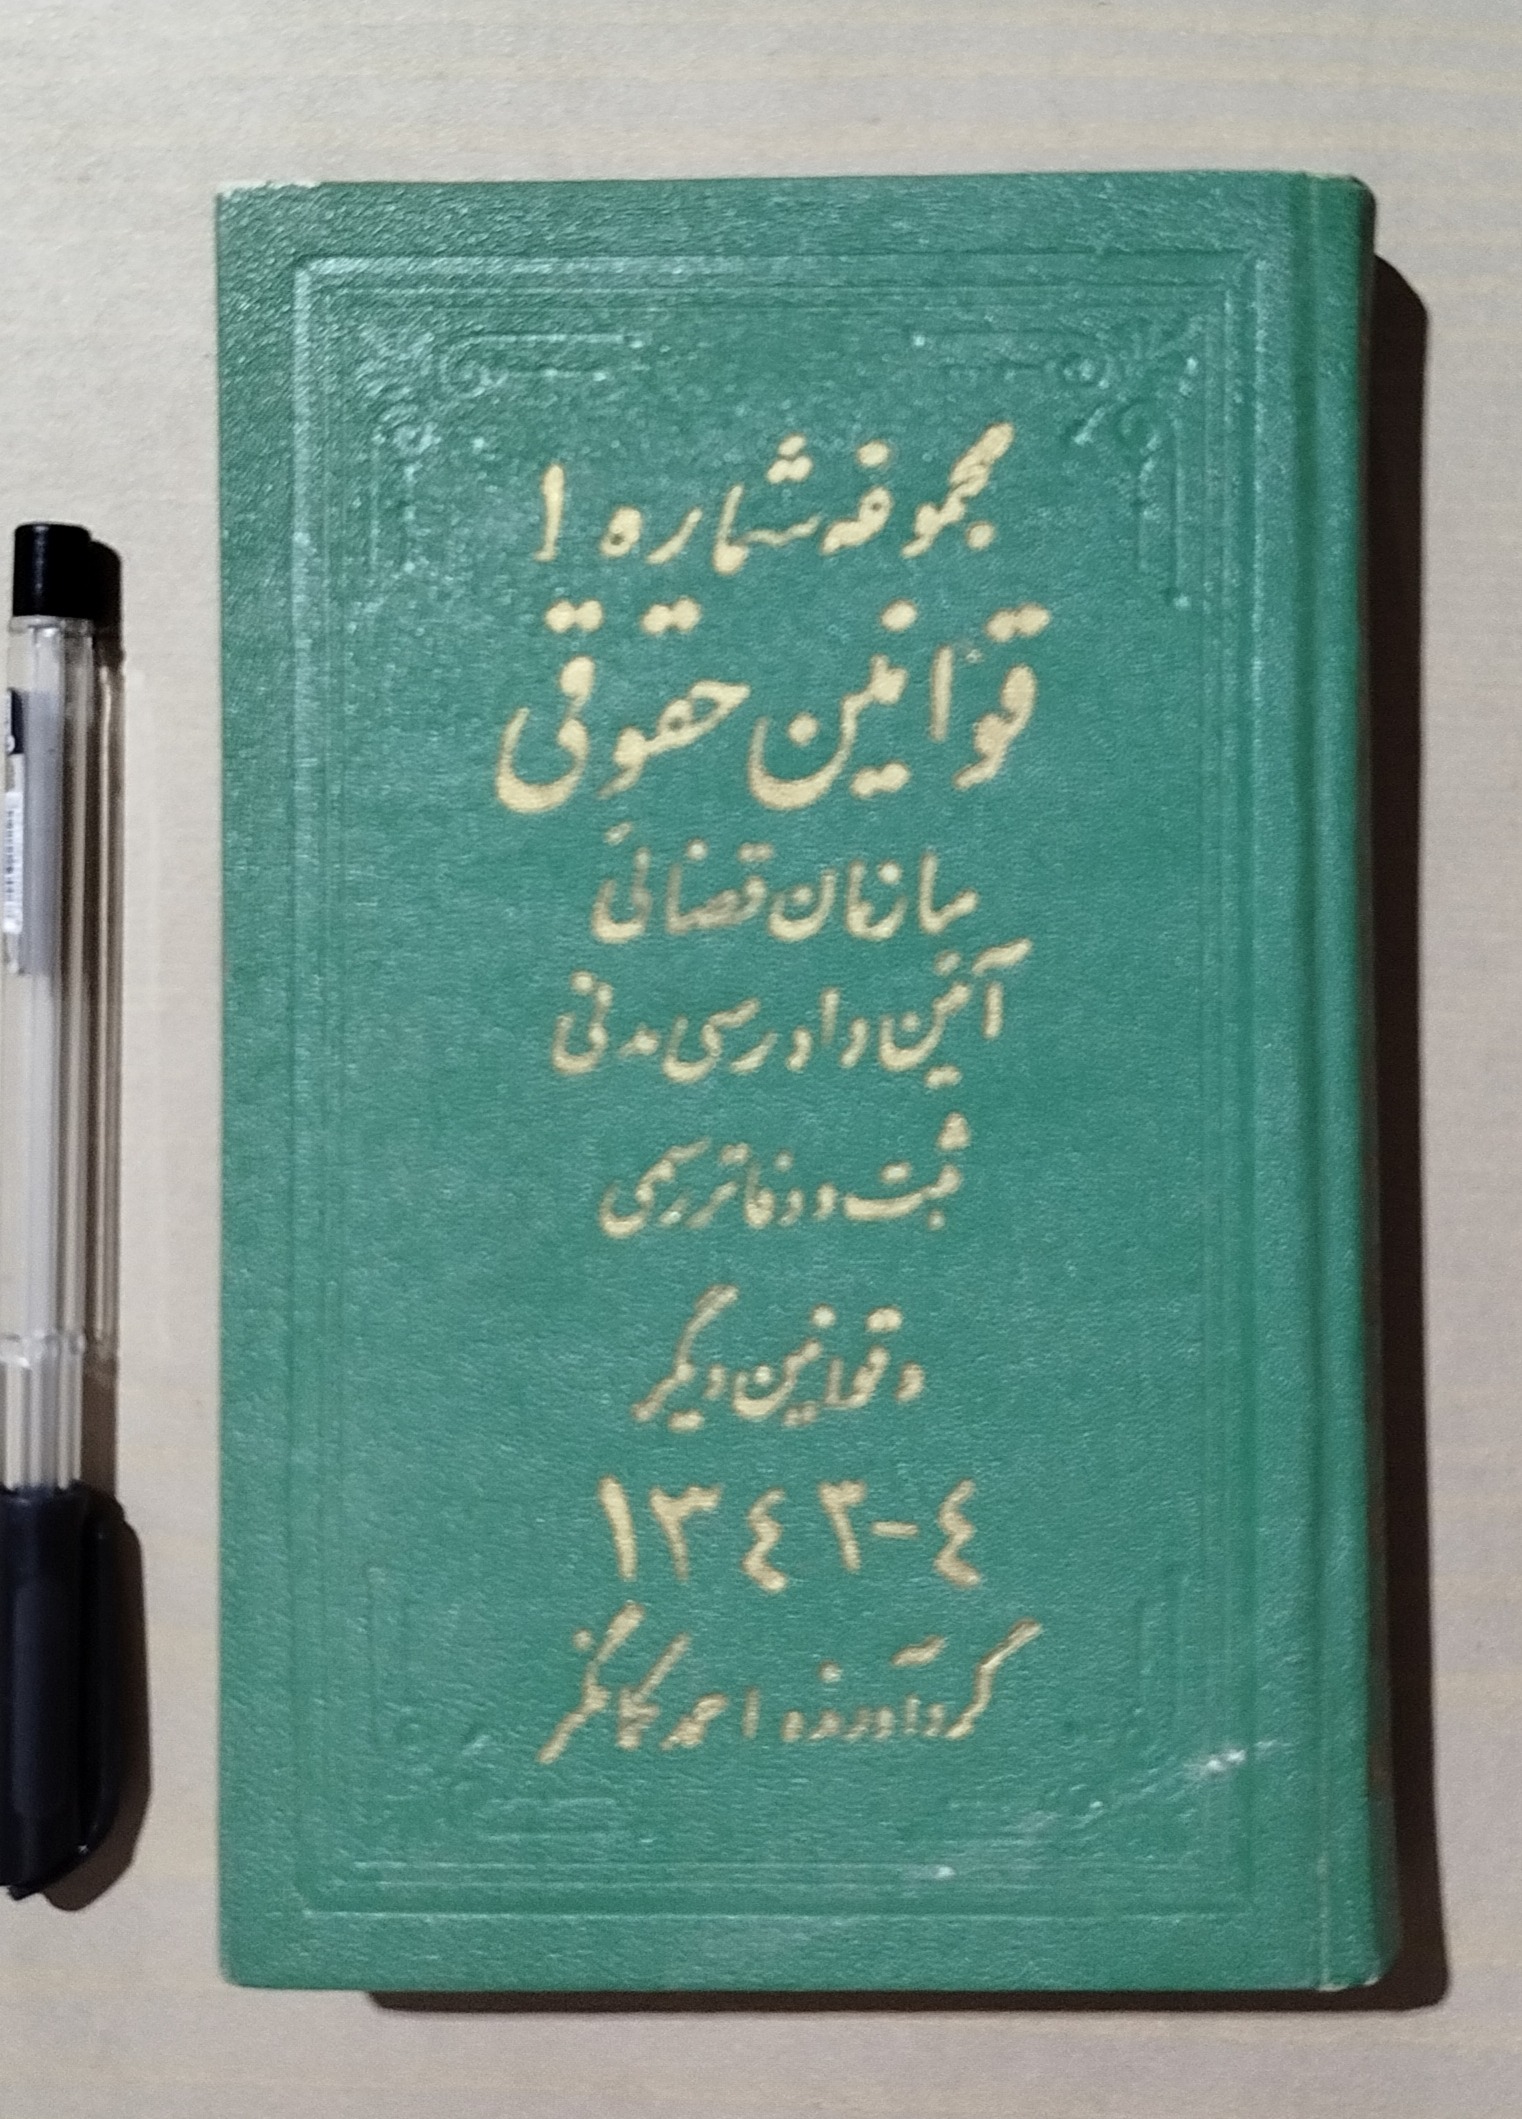 مجموعه شماره ۱
قوانین حقوقی
سازمان قضائی
آئین دادرسی مدنی
ثبت و دفاتر رسمی
و قوانین دیگر
۱۳٤۳-٤
گردآورنده احمد کمانگر